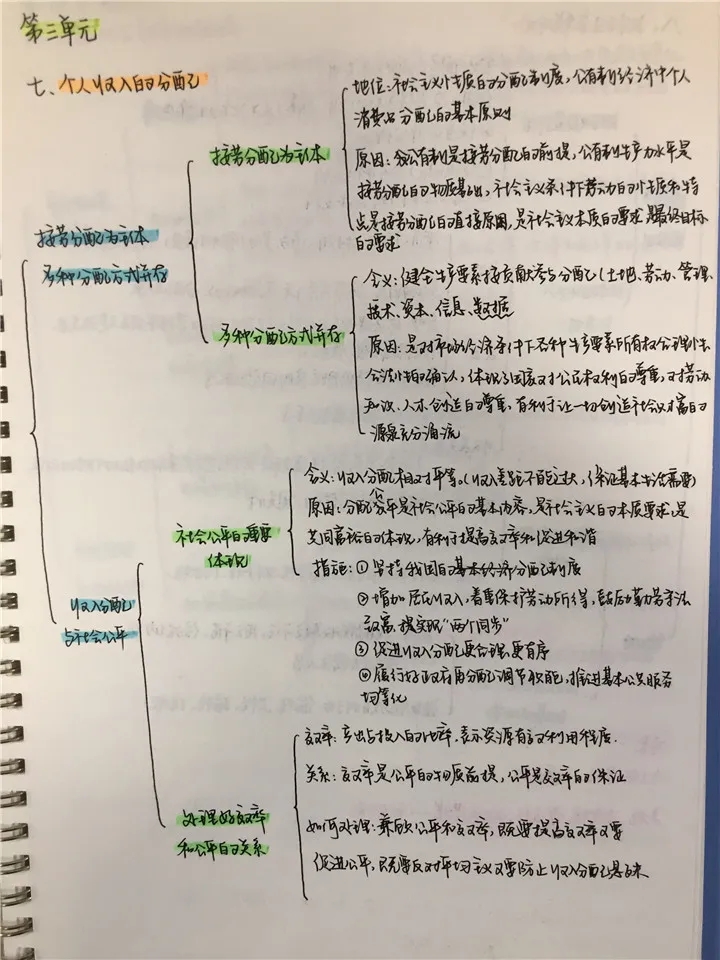 第三单元
七、个人收入的分配
按劳分配为主体
多种分配方式并存
按劳分配为主体
地位：社会主义性质的分配制度，公有制经济中个人
消费品分配的基本原则
原因：公有制是按劳分配的前提，公有制生产力水平是
按劳分配的物质基础，社会主义条件下劳动的性质和特
点是按劳分配的直接原因，是社会主义本质的要求，最终目标
的要求
多种分配方式并存
含义：健全生产要素按贡献参与分配（土地、劳动、管理、
技术、资本、信息、数据
原因：是对市场经济条件下各种生产要素所有权合理性、
合法性的确认，体现了国家对公民权利的尊重，对劳动
知识、人才、创造的尊重，有利于让一切创造社会财富的
源泉充分涌流
收入分配
与社会公平
社会公平的重要
体现
含义：收入分配相对平等。（收入差距不能过大，保证基本生活需要）
原因：分配公平是社会公平的基本内容，是社会主义的本质要求，是
共同富裕的体现，有利于提高效率和促进和谐
措施：①坚持我国的基本经济分配制度
②增加居民收入，着重保护劳动所得，鼓励勤劳守法
致富，实现“两个同步”
③促进收入分配更合理、更有序
④履行好政府再分配调节职能，推进基本公共服务
均等化
处理好效率
和公平的关系
效率：产出与投入的比率，表示资源有效利用程度.
关系：效率是公平的物质前提，公平是效率的保证
如何处理：兼顾公平和效率，既要提高效率又要
促进公平，既要反对平均主义又要防止收入分配悬殊